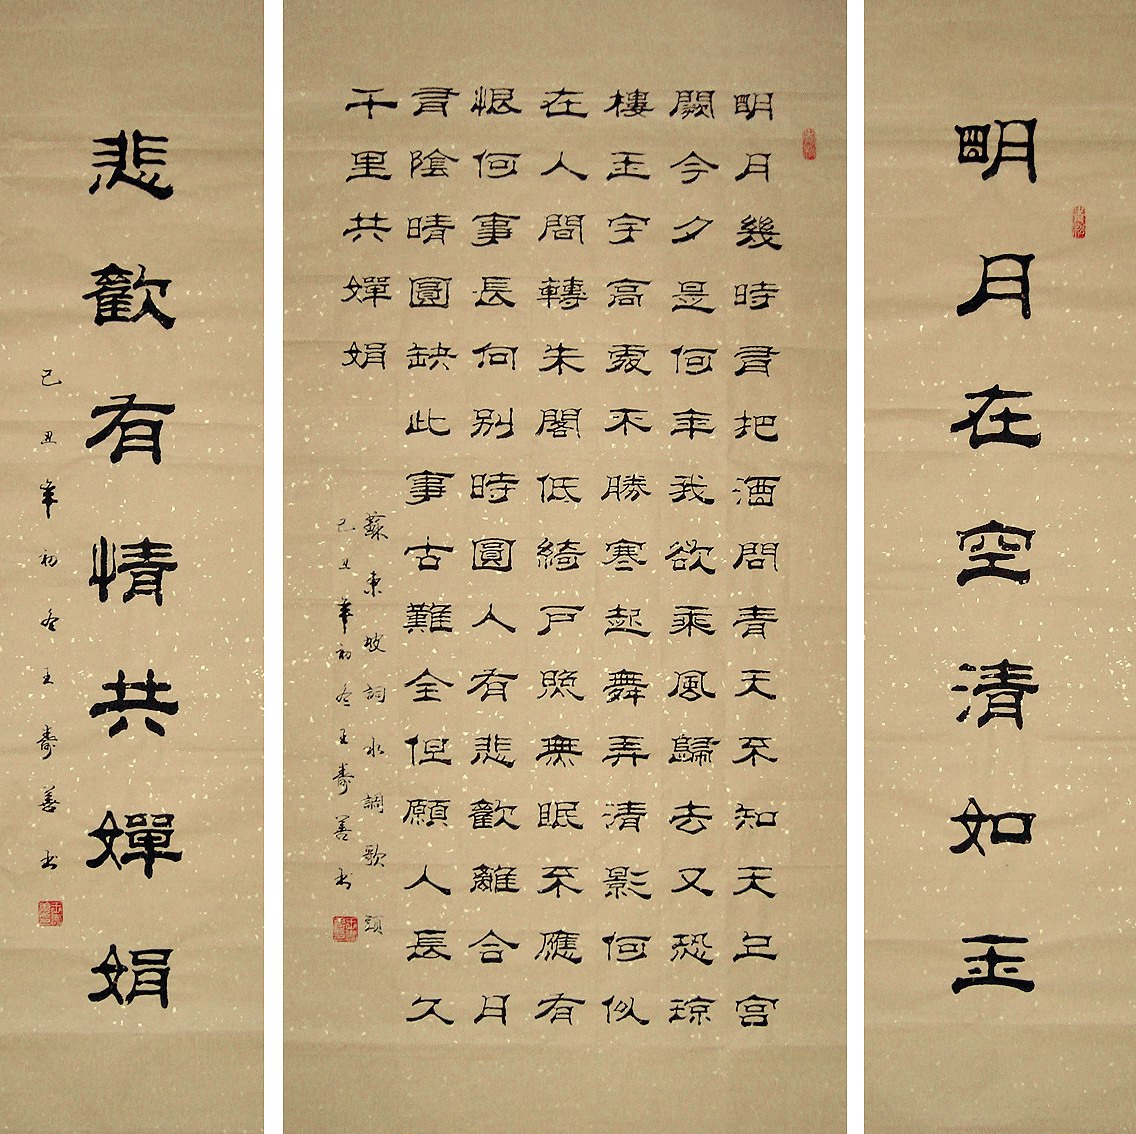 明月在空清如玉
明月幾時有把酒問青天不知天上宮
闕今夕是何年我欲乘風歸去又恐琼
樓玉宇高處不勝寒起舞弄清影何似
在人間轉朱閣低綺戶照無眠不應有
恨何事長向別時圓人有悲歡離合月
有陰晴圓缺此事古難全但願人長久
千里共嬋娟
蘇東坡詞水調歌頭
己丑年初冬王壽善书
悲歡有情共嬋娟
己丑年初冬王壽善书